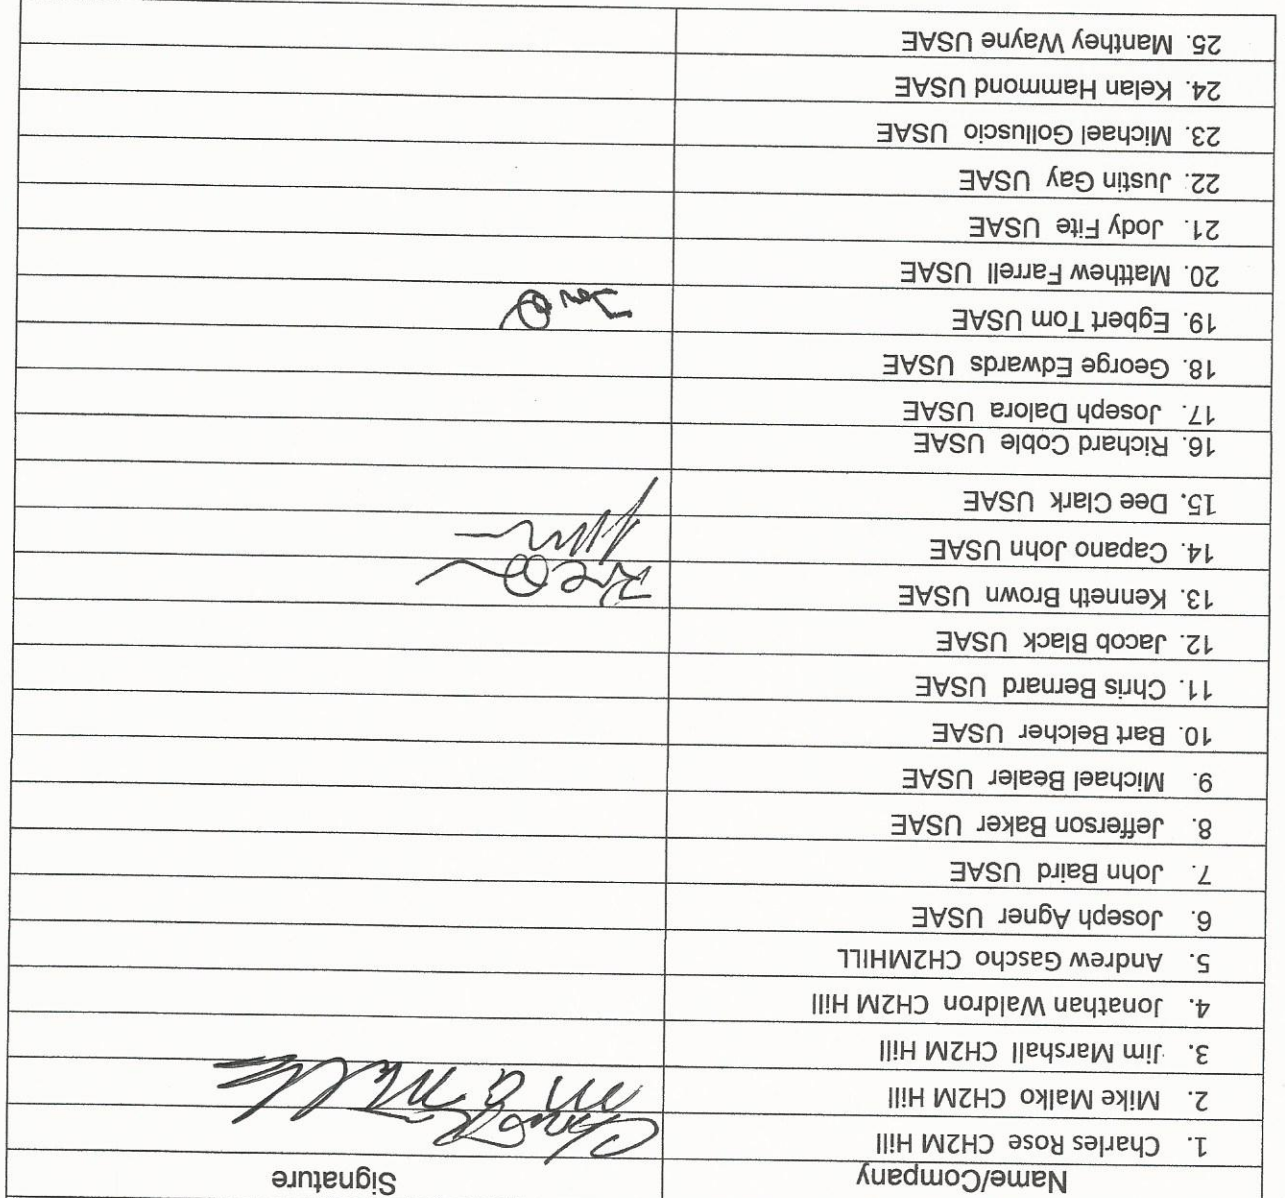 Name/Company Signature
1. Charles Rose CH2M Hill
2. Mike Malko CH2M Hill
3. Jim Marshall CH2M Hill
4. Jonathan Waldron CH2M Hill
5. Andrew Gascho CH2MHILL
6. Joseph Agner USAE
7. John Baird USAE
8. Jefferson Baker USAE
9. Michael Bealer USAE
10. Bart Belcher USAE
11. Chris Bernard USAE
12. Jacob Black USAE
13. Kenneth Brown USAE
14. Capano John USAE
15. Dee Clark USAE
16. Richard Coble USAE
17. Joseph Dalora USAE
18. George Edwards USAE
19. Egbert Tom USAE
20. Matthew Farrell USAE
21. Jody Fite USAE
22. Justin Gay USAE
23. Michael Golluscio USAE
24. Kelan Hammond USAE
25. Manthey Wayne USAE